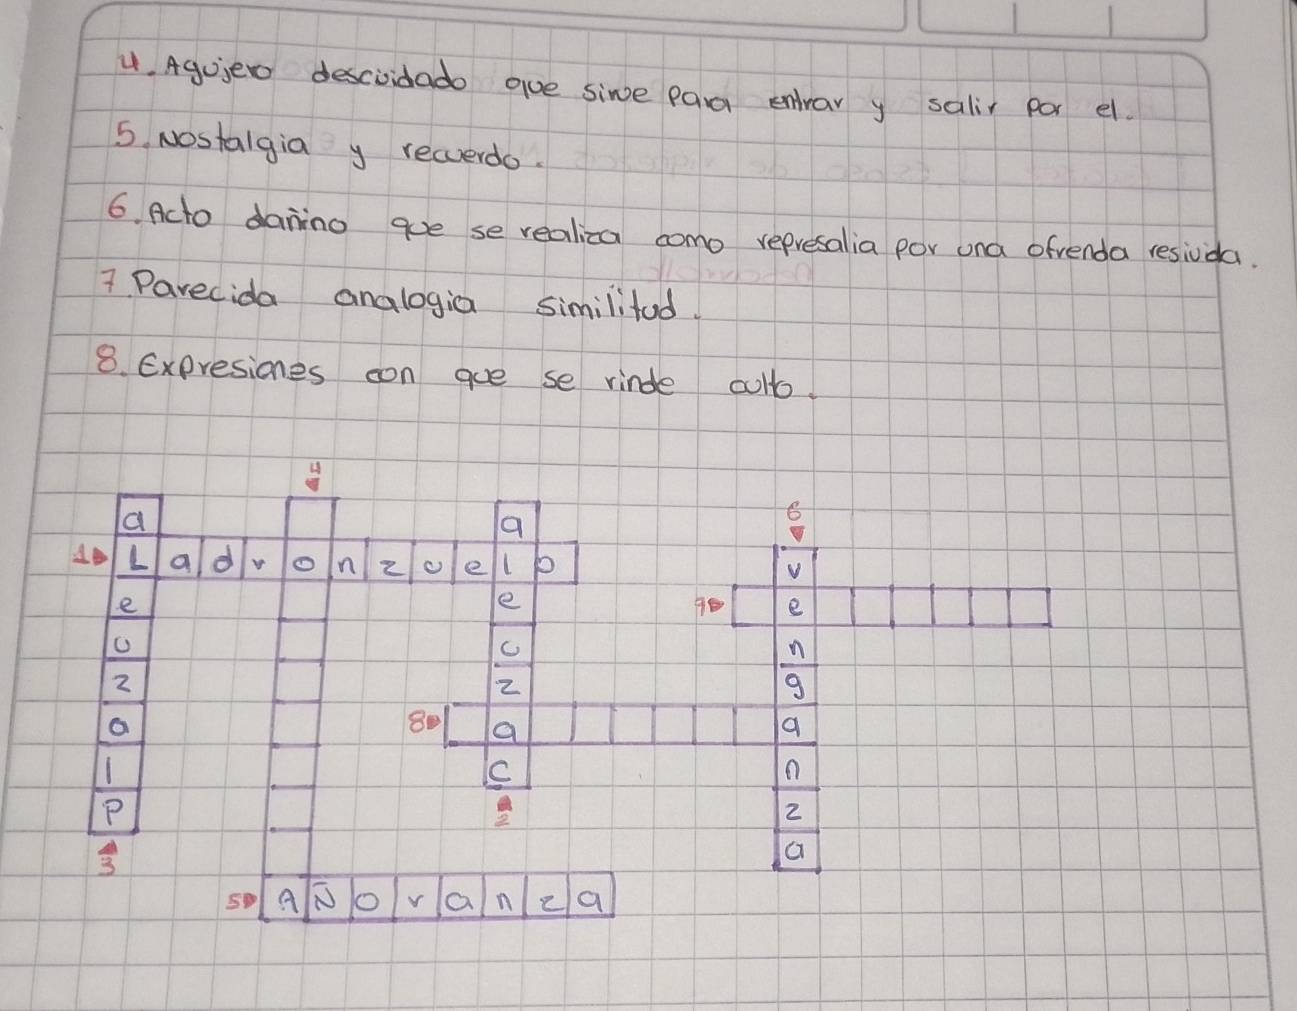 4. Agujero descuidado que sirve para entrar y salir por el.
5. Nostalgia y recuerdo.
6. Acto dañino que se realiza como represalia por una ofrenda resivida.
7. Parecida analogia similitud.
8. Expresiones con que se rinde culto.
4
a a 6
1 Ladronzuelo v
e e 7 e
u u n
z z g
a 8 a a
l c n
p 2 z
3 a
5 AÑoranza